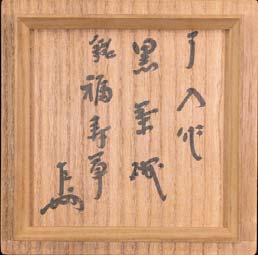 了入作
黒茶碗
銘福寿草